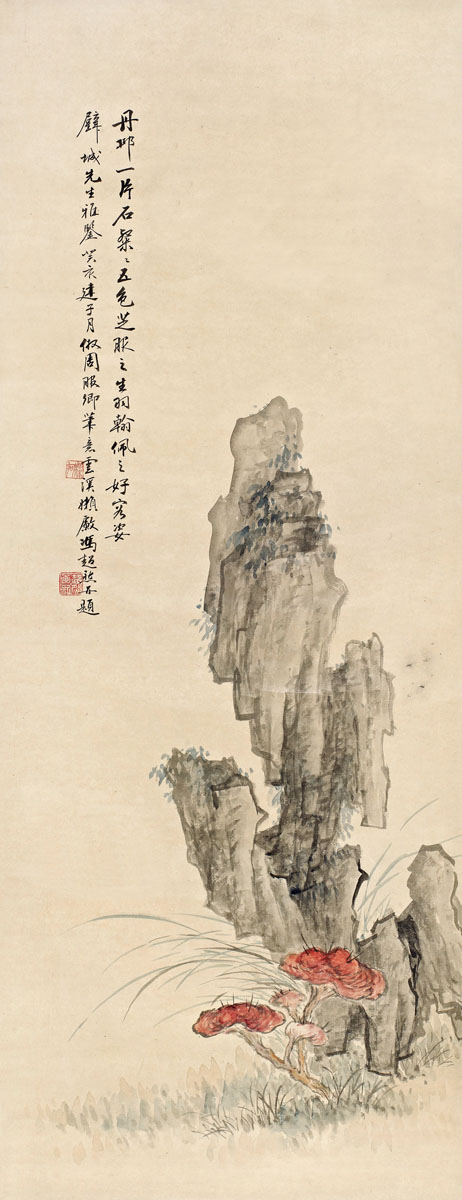 丹邱一片石粲〻五色芝服之生羽翰佩之好容姿
城先生雅鑒癸亥建子月倣周服卿筆意雲溪懶廠馮超然并題